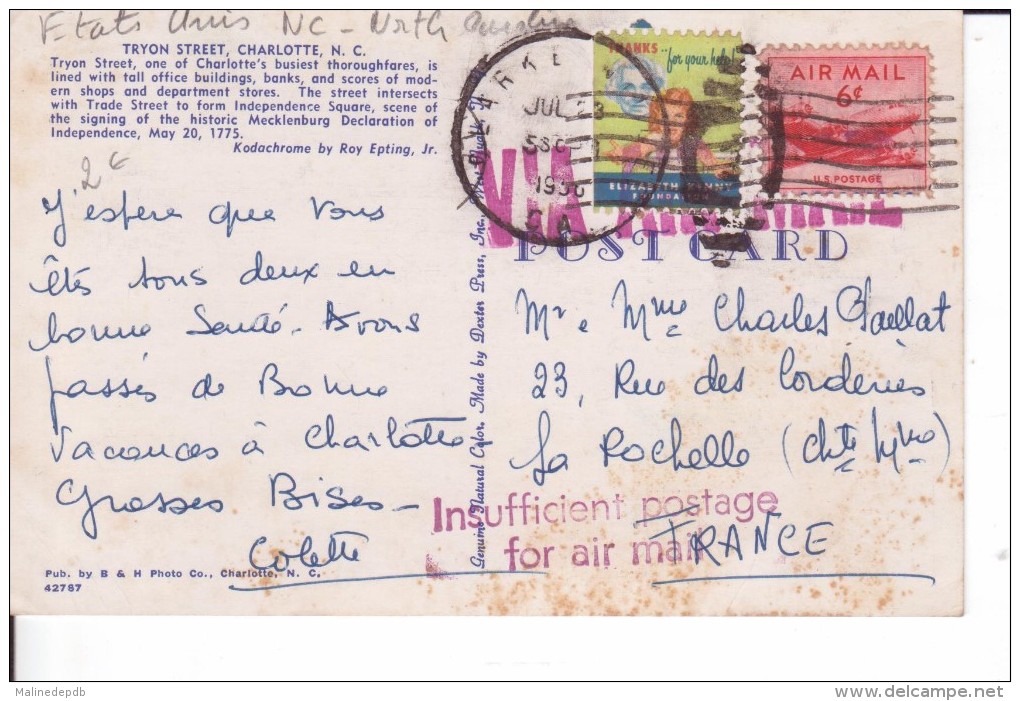 Etats Unis NC - North Carolina
TRYON STREET, CHARLOTTE, N. C.
Tryon Street, one of Charlotte's busiest thoroughfares, is
lined with tall office buildings, banks, and scores of mod-
ern shops and department stores. The street intersects
with Trade Street to form Independence Square, scene of
the signing of the historic Mecklenburg Declaration of
Independence, May 20, 1775.
Kodachrome by Roy Epting, Jr.
2€
J'espère que vous
êtes tous deux en
bonne Santé. Avons
passés de Bonne
Vacances à Charlotte
Grosses Bises -
Colette
Pub. by B & H Photo Co., Charlotte, N. C.
42787
Genuine Natural Color, Made by Dexter Press, Inc.,
JUL 23
GA
THANKS.. for your help!
ELIZABETH KENNY
FOUNDATION
AIR MAIL
6¢
U.S. POSTAGE
VIA
POST CARD
Mr e Mme Charles Gaillat
23, Rue des Corderies
La Rochelle (Chte Mme)
FRANCE
Insufficient postage
for air mail
Malinedepdb
www.delcampe.net